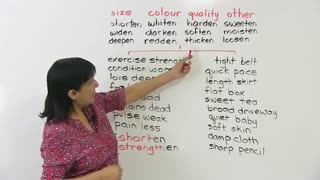 size colour quality other
shorten whiten harden sweeten
widen darken soften moisten
deepen redden thicken loosen
exercise
tight belt
condition
quick pace
love
length skirt
flat box
dead
sweet tea
pains dead
broad driveway
pulse weak
quiet baby
pain less
soft skin
shorten
damp cloth
strengthen
sharp pencil